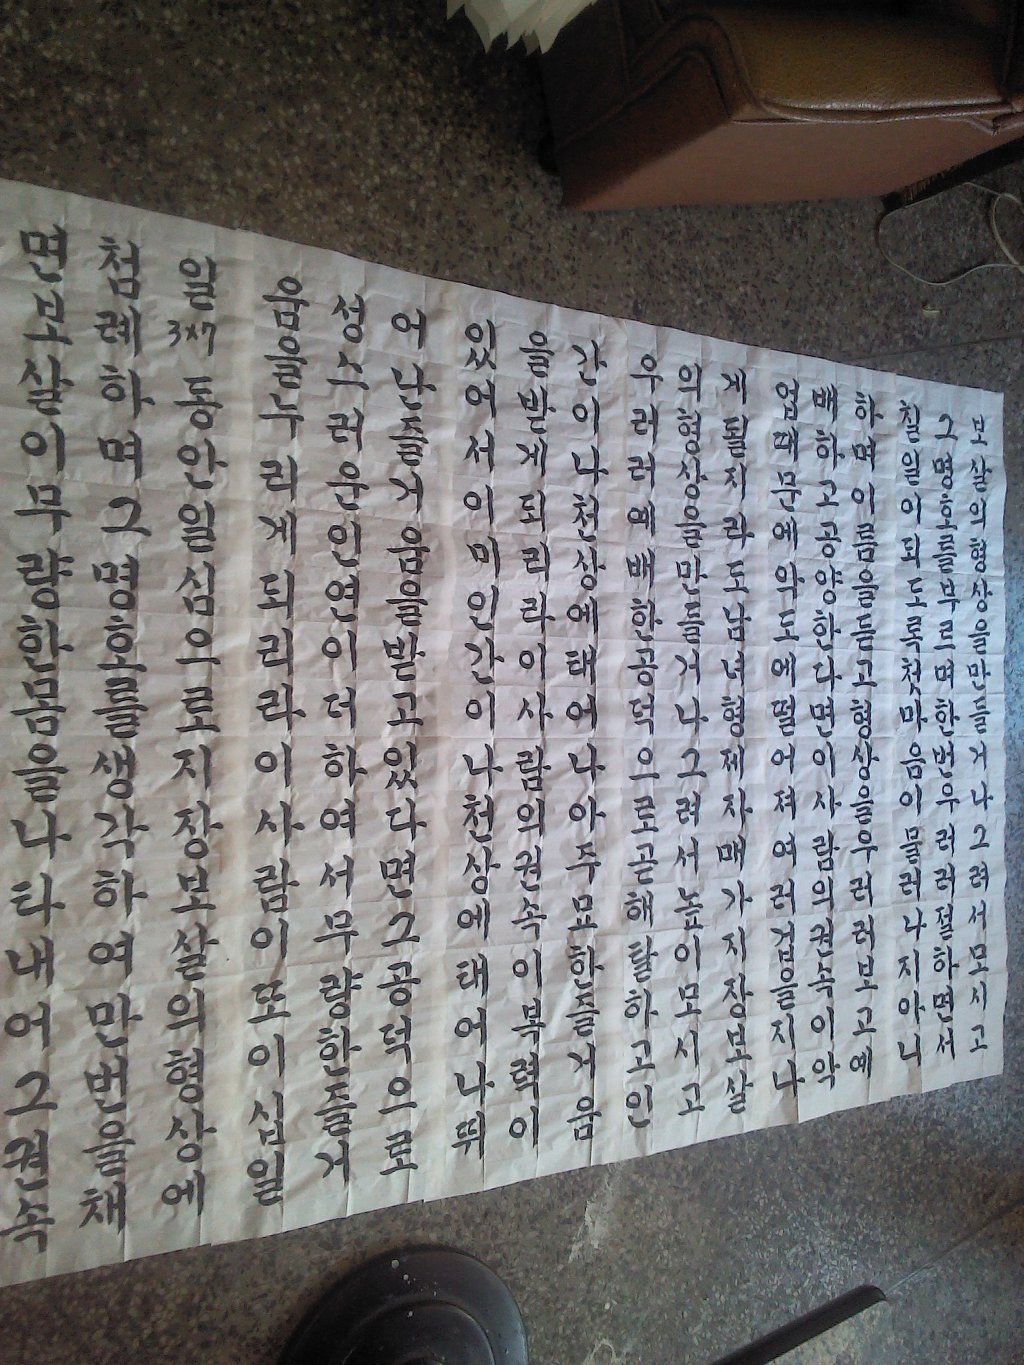 보살의형상을만들거나그려서모시고
그명호를부르며한번우러러절하면서
칠일이고도록첫마음이물러나지아니
하며이름을듣고형상을우러러보고예
배하고공양한다면이사람의권속이악
업때문에악도에떨어져여러겁을지나
게될지라도남녀형제자매가지장보살
의형상을만들거나그려서높이모시고
우러러예배한공덕으로곧해탈하고인
간이나천상에태어나아주묘한즐거움
을받게되리라이사람의권속이복력이
있어서이미인간이나천상에태어나뛰
어난즐거움을받고있다면그공덕으로
성스러운인연이더하여서무량한즐거
움을누리게되리라이사람이또이십일
일3x7동안일심으로지장보살의형상에
첨례하며그명호를생각하여만번을채
면보살이무량한몸을나타내어그권속